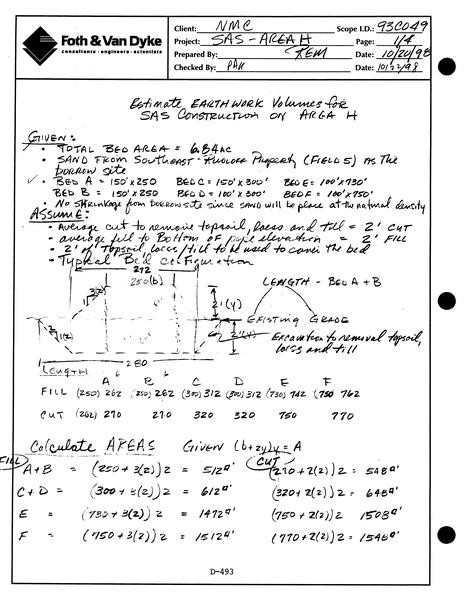 Foth & Van Dyke
consultants · engineers · scientists
Client: NMC Scope I.D.: 93C049
Project: SAS - AREA H Page: 1/4
Prepared By: REM Date: 10/20/98
Checked By: PAK Date: 10/22/98
Estimate EARTHWORK Volumes for
SAS CONSTRUCTION ON AREA H
GIVEN:
· TOTAL BED AREA = 6.84 AC
· SAND FROM SOUTHEAST - Property (FIELD 5) AS The
borrow site
✓ · BED A = 150'x250 BED C = 150'x300' BED E = 100'x730'
BED B = 150'x250 BED D = 100'x300' BED F = 100'x750'
· No shrinkage from borrow site since sand will be place at the natural density
ASSUME:
· Average cut to remove topsoil, loess and till = 2' CUT
· average fill to Bottom of pipe elevation = 2' FILL
· 2' of Topsoil, loess, till to be used to cover the bed
· Typical Bed configuration
272
250(b)
LENGTH - BED A + B
3(z)
2'(Y)
EXISTING GRADE
2'(Y)
Excavation to removal topsoil,
loess and till
280
LENGTH
A B C D E F
FILL (250) 262 (250) 262 (300) 312 (300) 312 (730) 742 (750) 762
CUT (262) 270 270 320 320 750 770
Calculate AREAS GIVEN (b+zy)y = A
FILL CUT
A+B = (250+3(2))2 = 512 (270+2(2))2 = 548
C+D = (300+3(2))2 = 612 (320+2(2))2 = 648
E = (730+3(2))2 = 1472 (750+2(2))2 1508
F = (750+3(2))2 = 1512 (770+2(2))2 = 1548
D-493